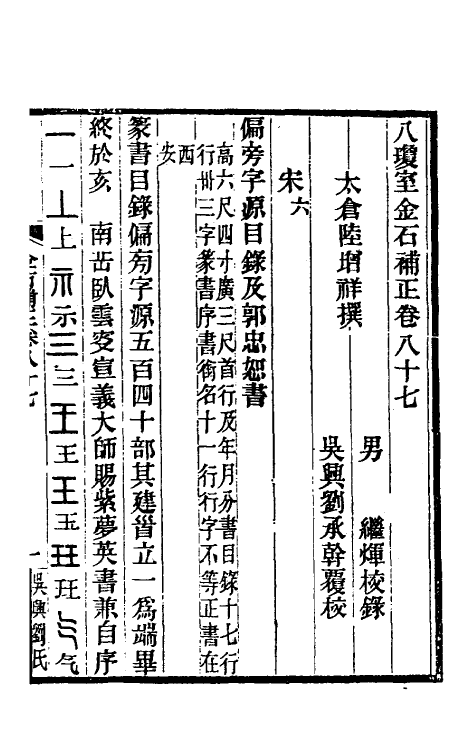 八瓊室金石補正卷八十七
太倉陸增祥撰
男　　繼煇校錄
吳興劉承幹覆校
宋六
偏旁字源目錄及郭忠恕書
高六尺四寸廣三尺首行及年月分書目錄十七行
行卅三字篆書序書銜名十一行行字不等正書在
西安
篆書目錄偏旁字源五百四十部其建首立一爲耑畢
終於亥　南岳臥雲叜宣義大師賜紫夢英書兼自序
一一丄上示示三三王王王玉玨玨气气
金石補正卷八十七
一
吳興劉氏